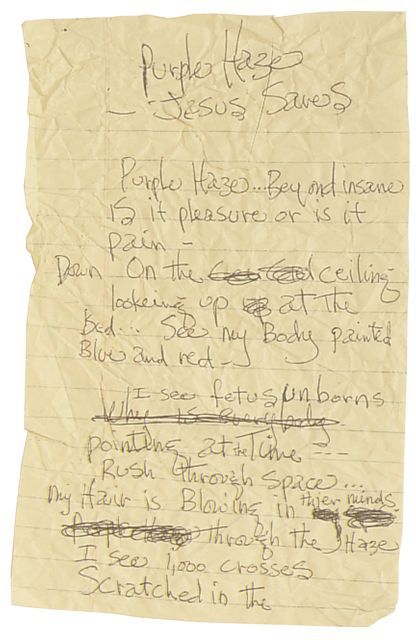 Purple Haze
— Jesus Saves
Purple Haze... Beyond insane
is it pleasure or is it
pain –
Down On the ceiling
lookeing up at the
Bed... See my Body painted
Blue and red –
I see fetus unborns
Why is everybody
pointing at the Time ---
Rush through space...
my Hair is Blowing in thier minds
through the Haze
I see 1,000 crosses
Scratched in the